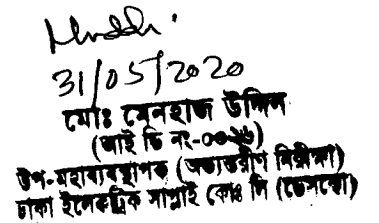 31/05/2020
মোঃ মেনহাজ উদ্দিন
(আই ডি নং-
উপ-মহাব্যবস্থাপক (অভ্যন্তরীণ নিরীক্ষা)
ঢাকা ইলেকট্রিক সাপ্লাই কোঃ লি (ডেসকো)